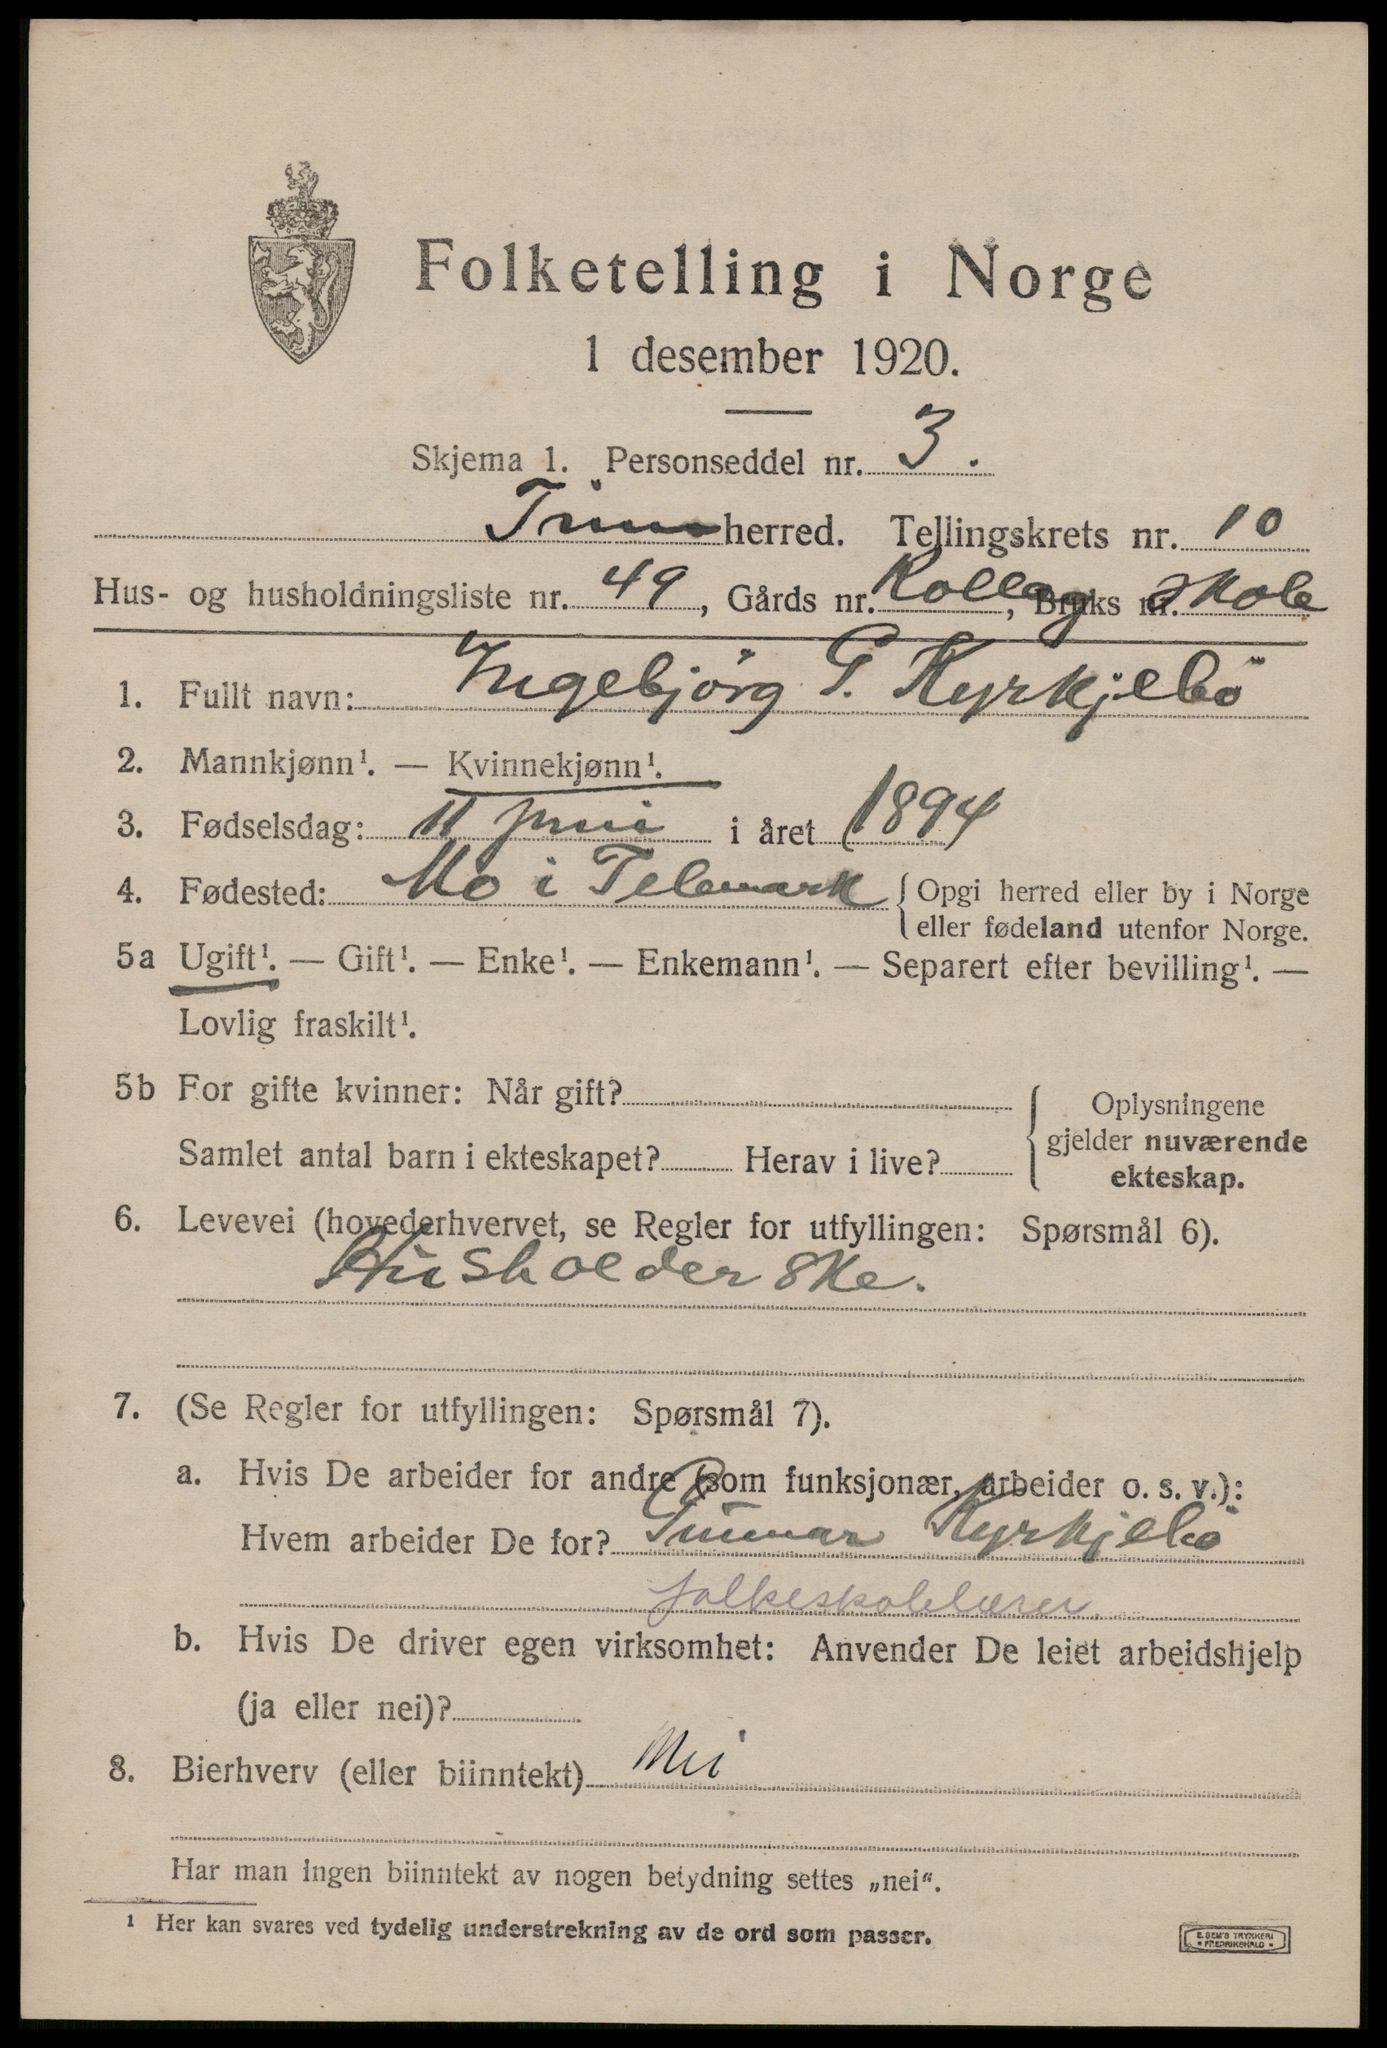 Folketelling i Norge
1 desember 1920.
Skjema 1. Personseddel nr. 3.
Trinn herred. Tellingskrets nr. 10
Hus- og husholdningsliste nr. 49, Gårds nr. Kolley, Bruks nr. skole
1. Fullt navn: Ingebjørg G. Kyrkjebö
2. Mannkjønn¹. — Kvinnekjønn¹.
3. Fødselsdag: 11 juni i året 1894
4. Fødested: Mo i Telemark { Opgi herred eller by i Norge
eller fødeland utenfor Norge.
5a Ugift¹. — Gift¹. — Enke¹. — Enkemann¹. — Separert efter bevilling¹. —
Lovlig fraskilt¹.
5b For gifte kvinner: Når gift?
Samlet antal barn i ekteskapet? Herav i live?
Oplysningene
gjelder nuværende
ekteskap.
6. Levevei (hovederhvervet, se Regler for utfyllingen: Spørsmål 6).
Husholderske.
7. (Se Regler for utfyllingen: Spørsmål 7).
a. Hvis De arbeider for andre (som funksjonær, arbeider o. s. v.):
Hvem arbeider De for? Gunnar Kyrkjebö
folkeskolelærer
b. Hvis De driver egen virksomhet: Anvender De leiet arbeidshjelp
(ja eller nei)?
8. Bierhverv (eller biinntekt) Nei
Har man ingen biinntekt av nogen betydning settes „nei“.
¹ Her kan svares ved tydelig understrekning av de ord som passer.
E. SEM'S TRYKKERI
FREDRIKSHALD